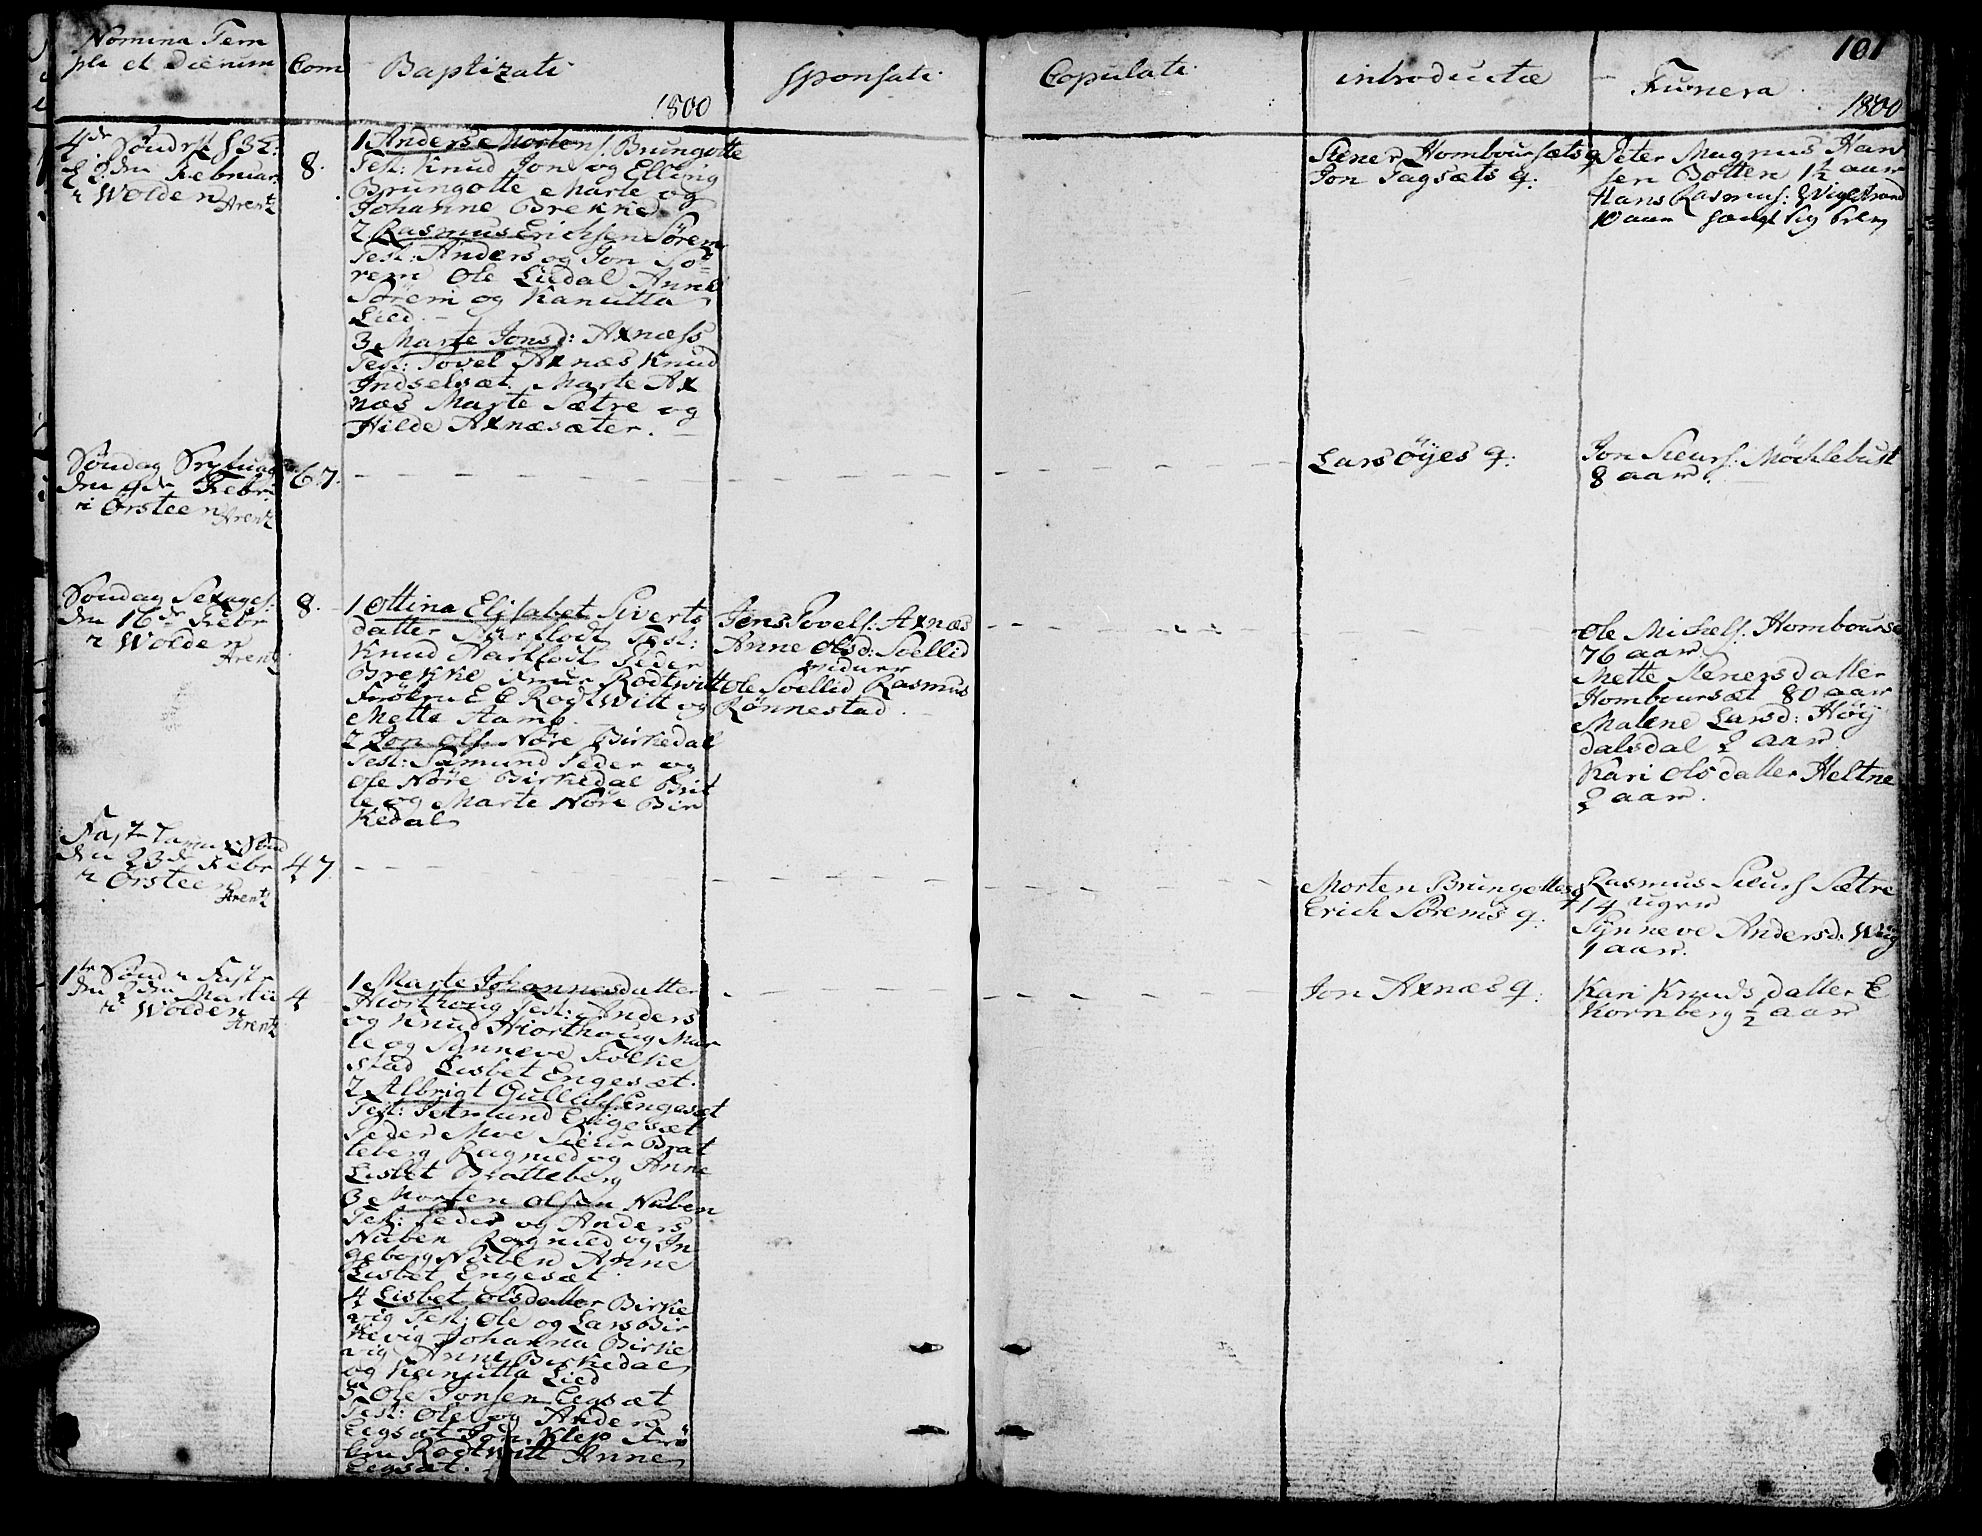 101
Nomina Tem
pli et Dierum
Com
Baptizati
1800
Sponsati
Copulati
introductæ
Funera
1800
4de Søndag
den Februar
i Wolden Arentz
8.
1 Anders Mortens. Brungotte
Test: Knud Jon og Elling
Brungotte Marte og
Johanne Brekke
2 Rasmus Erichsen Sørem
Test: Anders og Jon Sø
rem Ole Liedal Anne
Sørem og Kanutta
Lied.
3 Marte Jonsd: Axnæss
Test: Povel Axnæs Knud
Indselsæt Marte Ax
næs Marte Sætre og
Hilde Axnæsæter.
Stener Homboursæts q.
Jon Tagsæts q.
Peter Magnus Han
sen Botten 1½ aar
Hans Rasmus:
10 aar
Søndag
den 9de Febr.
i Ørsteen Arentz
67.
Lars Öyes q.
Jon Siurs: Möchlebust
8 aar.
Søndag Sexages:
den 16de Febr
i Wolden
Arentz
8.
1 Ottina Elisabet Siverts
datter Aarflodt Test:
Knud Aarflodt Peder
Brekke
Frøken E E Rodtwitt og
Mette Stamp
2 Jon Ols. Nøre Birkedal
Test: Samund Peder og
Ole Nøre Birkedal Brit
te og Marte Nøre Bir
kedal
Jens Povels: Axnæs
Anne Olsd: Soellid
Ole Soellid Rasmus
Rønnestad
Ole Michels: Hombourse
76 aar
Mette Stenersdatter
Homboursæt 80 aar
Malene Larsd: Høy
dalsdal 2 aar
Kari Olsdatter Heltne
2 aar.
den 23de Febr
i Ørsteen
Arentz
47.
Morten Brungottes q
Erich Sørems q.
Rasmus Siurs Sætre
14 uger
Synneve Andersd: Wiig
1 aar.
1te Sönd i Faste
den 2den Martii
i Wolden
Arentz
4
1 Marte Johannesdatter
Hiorthoug Test: Anders
og Knud Hiorthoug Mar
te og Synneve Folke
stad Lisbet Engesæt.
2 Albrigt Engesæt
Test: Engesæt
Peder Moe Siur Brat
teberg Ragnild og Anne
Lisbet Bratteberg
3 Morten Olsen Nuben
Test: Peder og Anders
Nuben Ragnild og In
geborg Nuben Anne
Lisbet Engesæt.
4 Lisbet Olsdatter Birke
vig Test: Ole og Lars Bir
kevig Johanna Birke
vig Anne Birkedal
og Kanutta Lied
5 Ole Jonsen Eigsæt
Test: Ole og Anders
Eigsæt Jon Klep Frö
ken Rodtwitt Anne
Eigsæt.
Jon Axnæs q.
Kari Knudsdatter E
Kornberg ½ aar